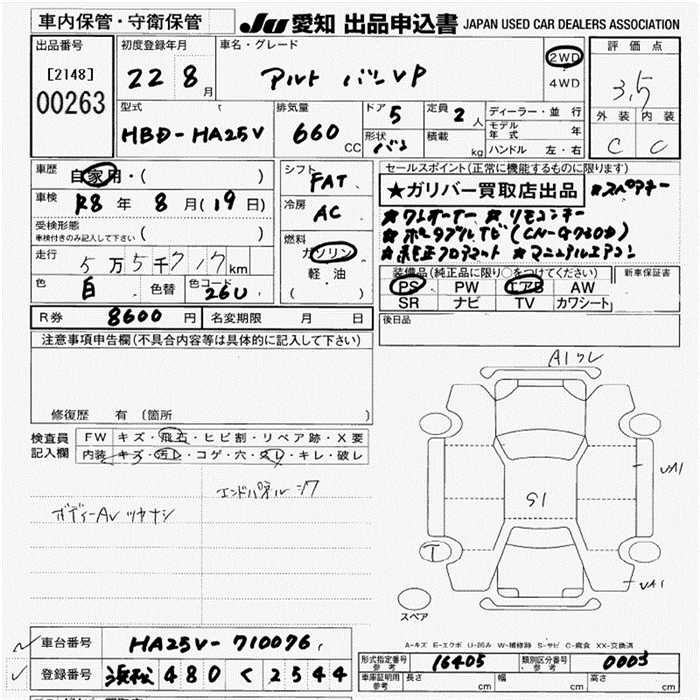 車内保管・守衛保管
JU 愛知 出品申込書 JAPAN USED CAR DEALERS ASSOCIATION
出品番号 初度登録年月 車名・グレード 評価点
[2148] 22 8月 アルト バン VP 2WD 4WD 3,5
00263
型式 排気量 ドア 5 定員 2人 ディーラー・並行 外装 内装
HBD-HA25V 660CC 形状 バン 積載 kg モデル年式 年 C C
ハンドル 左・右
車歴 自家用・( ) シフト FAT セールスポイント(正常に機能するものに限ります)
★ガリバー買取店出品 ★スペアキー
車検 R8年 8月(19日) 冷房 AC
★ワンオーナー ★リモコンキー
受検形態 車検付きのみ記入して下さい ( )
★ポータブルナビ(CN-G750D)
燃料 ガソリン 軽油 ( )
★純正フロアマット ★マニュアルエアコン
走行 5万5千717km
装備品(純正品に限り○をつけてください) 新車保証書
色 白 色替 色コード 26U
PS PW エアB AW
SR ナビ TV カワシート
R券 8600円 名変期限 月 日
後日品
注意事項申告欄(不具合内容等は具体的に記入して下さい)
A1ワレ
修復歴 有 (箇所 )
検査員記入欄 FW キズ・飛石・ヒビ割・リペア跡・X要
内装 キズ・汚レ・コゲ・穴・スレ・キレ・破レ
UA1
エンドパネルシワ
S1
ボディーAVツヤナシ
T
UA1
スペア
A-キズ E-エクボ U-凹み W-補修跡 S-サビ C-腐食 XX-交換済
車台番号 HA25V-710076
形式指定番号 参考 16405 類別区分番号 参考 0003
登録番号 浜松 480 く 2544
車庫証明用 参考 長さ cm 幅 cm 高さ cm